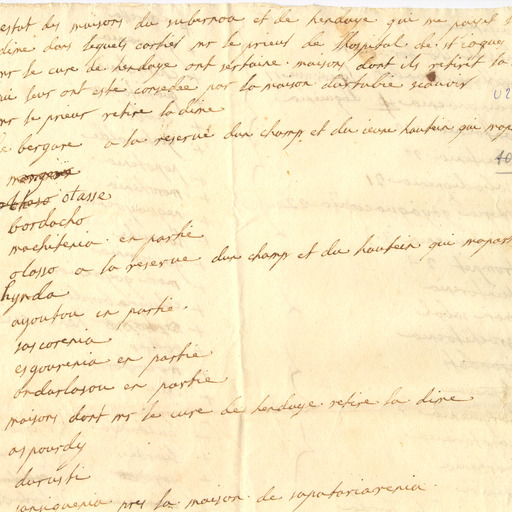 estat des maisons du subernoa et de hendaye qui me payent
dime dans lequels cartiés mr le prieur de l'hospital de st jaques
mr le curé de hendaye ont sertaine maisons dont ils retiret la
qui leur ont esté consedée par la maison durtubie scavoir
mr le prieur retire la dime
bergare a la reserve d'un champ et du vieux hautein qui mapar
otasse
bordacho
machitenia en partie
olasso a la reserve dun champ et du hautein qui mapart
hynda
ayoutou en partie
jascorenia
esgourenia en partie
ondarlasou en partie
maisons dont mr le cure de hendaye retire la dime
aspourdy
durusti
sansignenia pres la maison de sapatariarenia